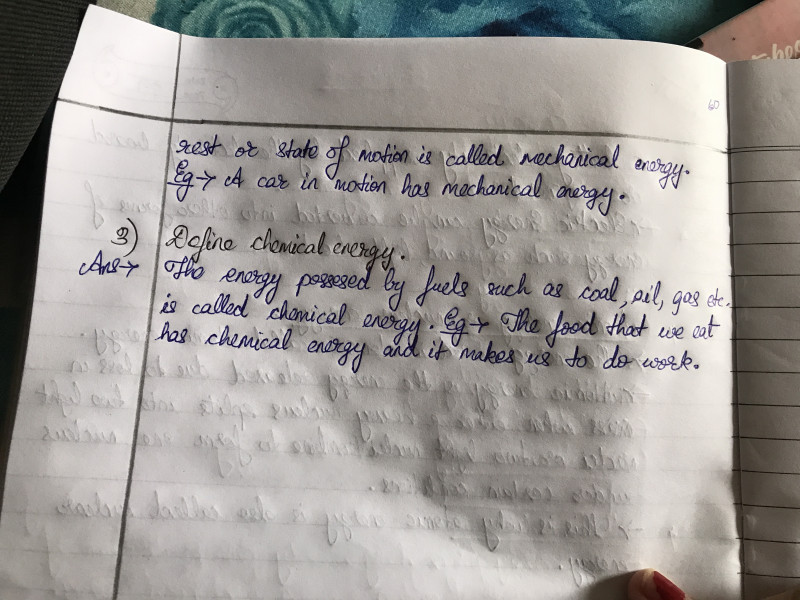 rest or state of motion is called mechanical energy.
Eg → A car in motion has mechanical energy.
3) Define chemical energy.
Ans→ The energy possesed by fuels such as coal, oil, gas etc.
is called chemical energy. Eg → The food that we eat
has chemical energy and it makes us to do work.